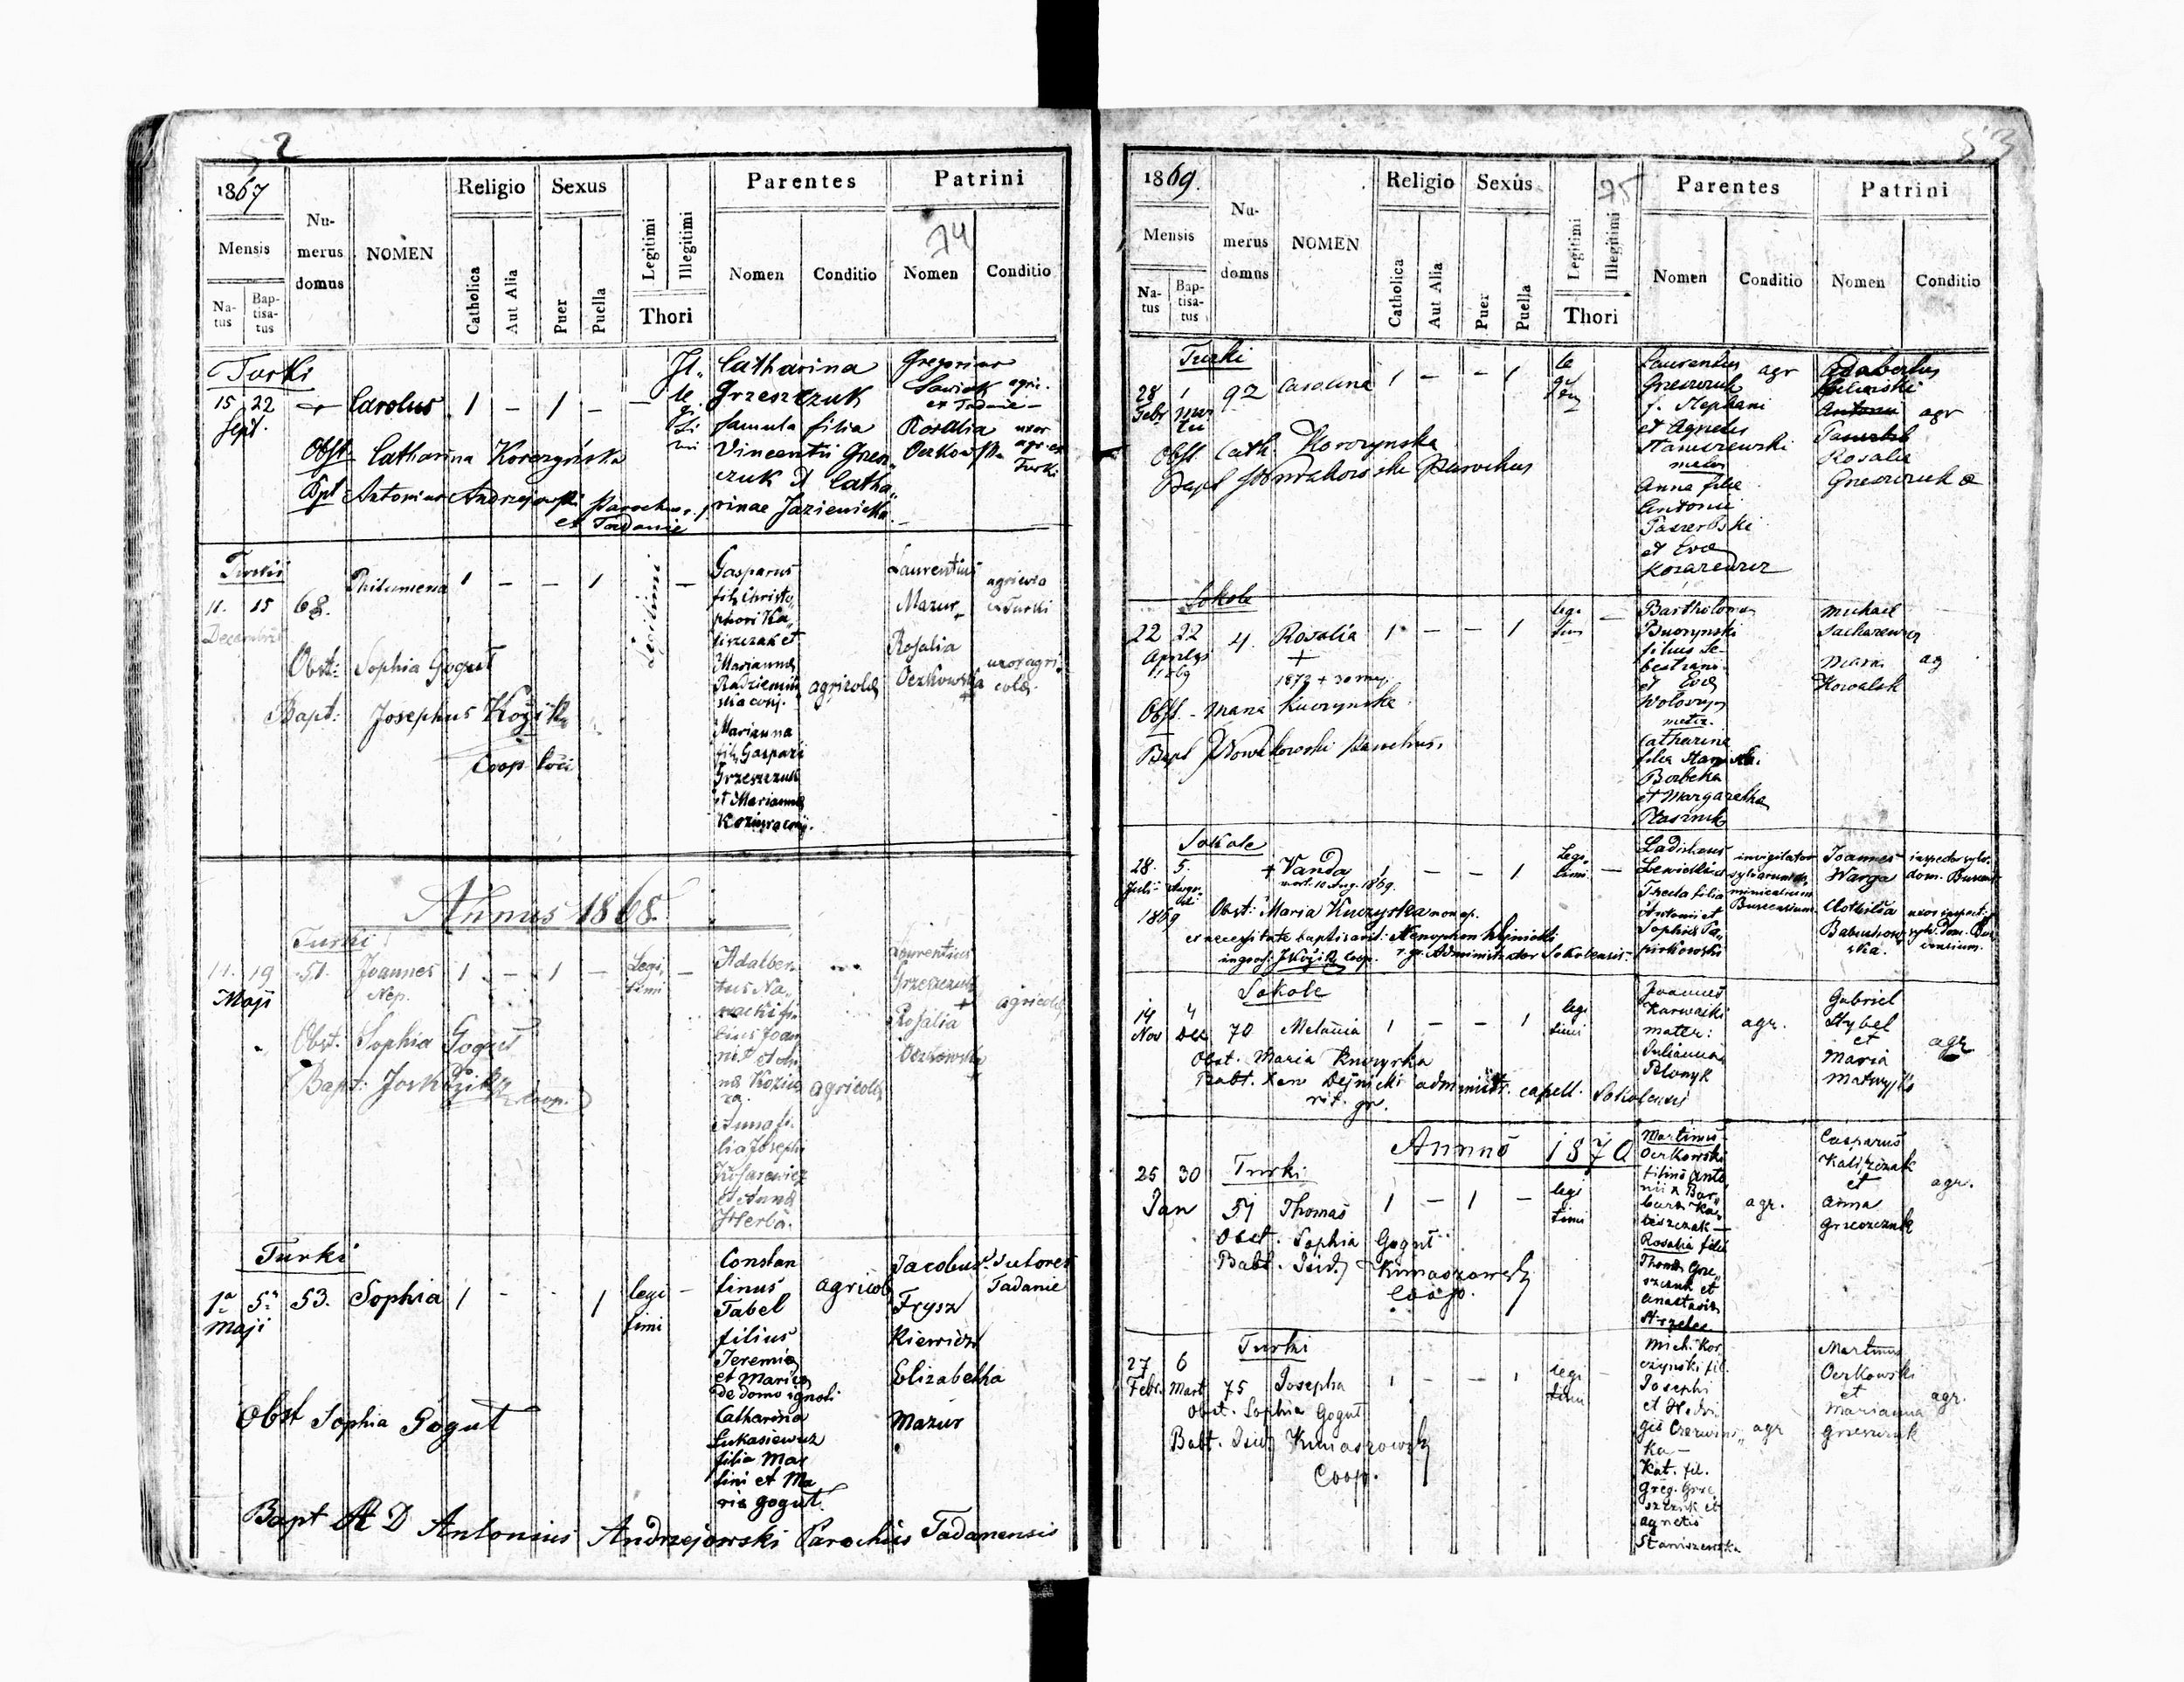 2
1867
Mensis
Na-
tus
Bap-
tisa-
tus
Nu-
merus
domus
NOMEN
Religio
Catholica
Aut Alia
Sexus
Puer
Puella
Legitimi
Illegitimi
Thori
Parentes
Nomen
Conditio
Patrini
74
Nomen
Conditio
Turki
15 22
Sept.
Carolus
1 - 1 - -
Il-
le
gi
ti
mi
Catharina
Grzeszczuk
famula filia
Vincentii Grzesz
czuk et Catha
rinae Jazienicka
Gregorius
Sawiak
Rosalia
Oczkowska
agric.
ex Tadanie
uxor
agr. ex
Turki
Obst. Catharina Korczyńska
Bpt Antonius Andrzejowski Parochus
ex Tadanie
Turki
11. 15
Decembris
68.
Philumena
1 - - 1
Legitimi
-
Gasparus
fil. Christo
phori Ka
liszczak et
Marianna
conj.
Marianna
fil. Gaspari
Grzeszczuk
et Marianna
agricola
Laurentius
Mazur
Rosalia
Oczkowska
+
agricola
ex Turki
uxor agri
colae
Obst: Sophia Gogut
Bapt: Josephus Kozik
Coop. loci
Annus 1868.
Turki
11. 19
Maji
51.
Joannes
Nep.
1 - 1 -
Legi
timi
-
Adalber
tus Na
wacki fi
lius Joan
nis et An
na Kozie
ra.
Anna fi
lia Josephi
Kosarewicz
et Anna
Herba.
agricola
Laurentius
Grzeszczuk
+
Rosalia
Oczkowska
agricola
Obst. Sophia Gogut
Bapt: Jos. Kozik Coop.
Turki
1a 5a
Maji
53.
Sophia
1 - - 1
legi
timi
-
Constan
tinus
Tabel
filius
Jeremia
et Maria
de domo ignoti
Catharina
Łukasiewicz
filia Mar
tini et Ma
ria Gogut.
agricola
Jacobus
Frysz
Kiewicz
Elizabetha
Mazur
Sutores
Tadanie
Obst Sophia Gogut
Bapt A D Antonius Andrzejowski Parochus Tadanensis
53
1869.
Mensis
Na-
tus
Bap-
tisa-
tus
Nu-
merus
domus
NOMEN
Religio
Catholica
Aut Alia
Sexus
Puer
Puella
Legitimi
Illegitimi
75
Thori
Parentes
Nomen
Conditio
Patrini
Nomen
Conditio
Turki
28 1
Febr Mar
tii
92
Carolina
1 - - 1
le
gi
Laurentius
Grzeszczuk
f. Stephani
et Agnetis
Staniszewski
mater
Anna filia
Antonii
et Eva
Kosarewicz
agr
Adalbertus
Rosalia
Grzeszczuk
agr
Obst. Cath. Korczynska
Bapt Nowakowski Parochus
Sokole
22 22
Aprilis
1869
4.
Rosalia
+
1872 + 30 maj.
1 - - 1
legi
timi
-
Bartholomeu
Buczynski
filius Se
bastiani
et Eva
mater
Catharina
filia
et Margaretha
Ptasznik
Michael
Maria
Kowalsk
ag
Obst. - Maria Kuczynska
Bapt Nowakowski Parochus.
Sokole
28. 5.
Juli Augu
sti
1869
+ Vanda
mort. 10 Aug. 1869.
1 - - 1
Legi
timi
-
Ladislaus
Lewicki
Thecla filia
Antonii et
Sophia Pa
pirkowski
invigilator
sylvarum do
minicalium
Buscensium
Joannes
Warga
Clotilda
Babuchow
ska.
inspector sylv.
dom. Buscens
uxor inspect.
sylv. dom. Bus
censium.
Obst: Maria Kuczyska non ap.
ex necessitate baptisavit: Xenophon Dejnicki
ingross: J. Kozik Coop. r. gr. Administrator Sokolensis
Sokole
14 4
Nov Dec
70
Melania
1 - - 1
legi
timi
Joannes
Karwacki
mater:
Julianna
Polonyk
agr.
Gabriel
Hybel
et
Maria
Matwyjko
agr
Obst. Maria Kuczyska
Babt. Xen Dejnicki administr. capell. Sokolensis
rit. gr.
Annus 1870
Turki
25 30
Jan
54
Thomas
1 - 1 -
legi
timi
Martinus
Oczkowski
filius Anto
nii et Bar
bara Ka
liszczak
Rosalia filia
Thoma Grze
szczuk et
Anastasia
Strzelec
agr.
Casparus
Kaliszczak
et
Anna
Grzeszczuk
agr.
Obst. Sophia Gogut
Babt. Isid. Kunaszowski
Coop.
Turki
27 6
Febr. Mart
75
Josepha
1 - - 1
legi
timi
-
Mich. Kor
czynski fil.
Josephi
et Hedvi
gis Czerwins
ka -
Kat. fil.
Greg. Grze
szczuk et
Agnetis
Staniszewska
agr
Martinus
Oczkowski
et
Marianna
Grzeszczuk
agr.
Obst. Sophia Gogut
Babt. Isid. Kunaszowski
Coop.